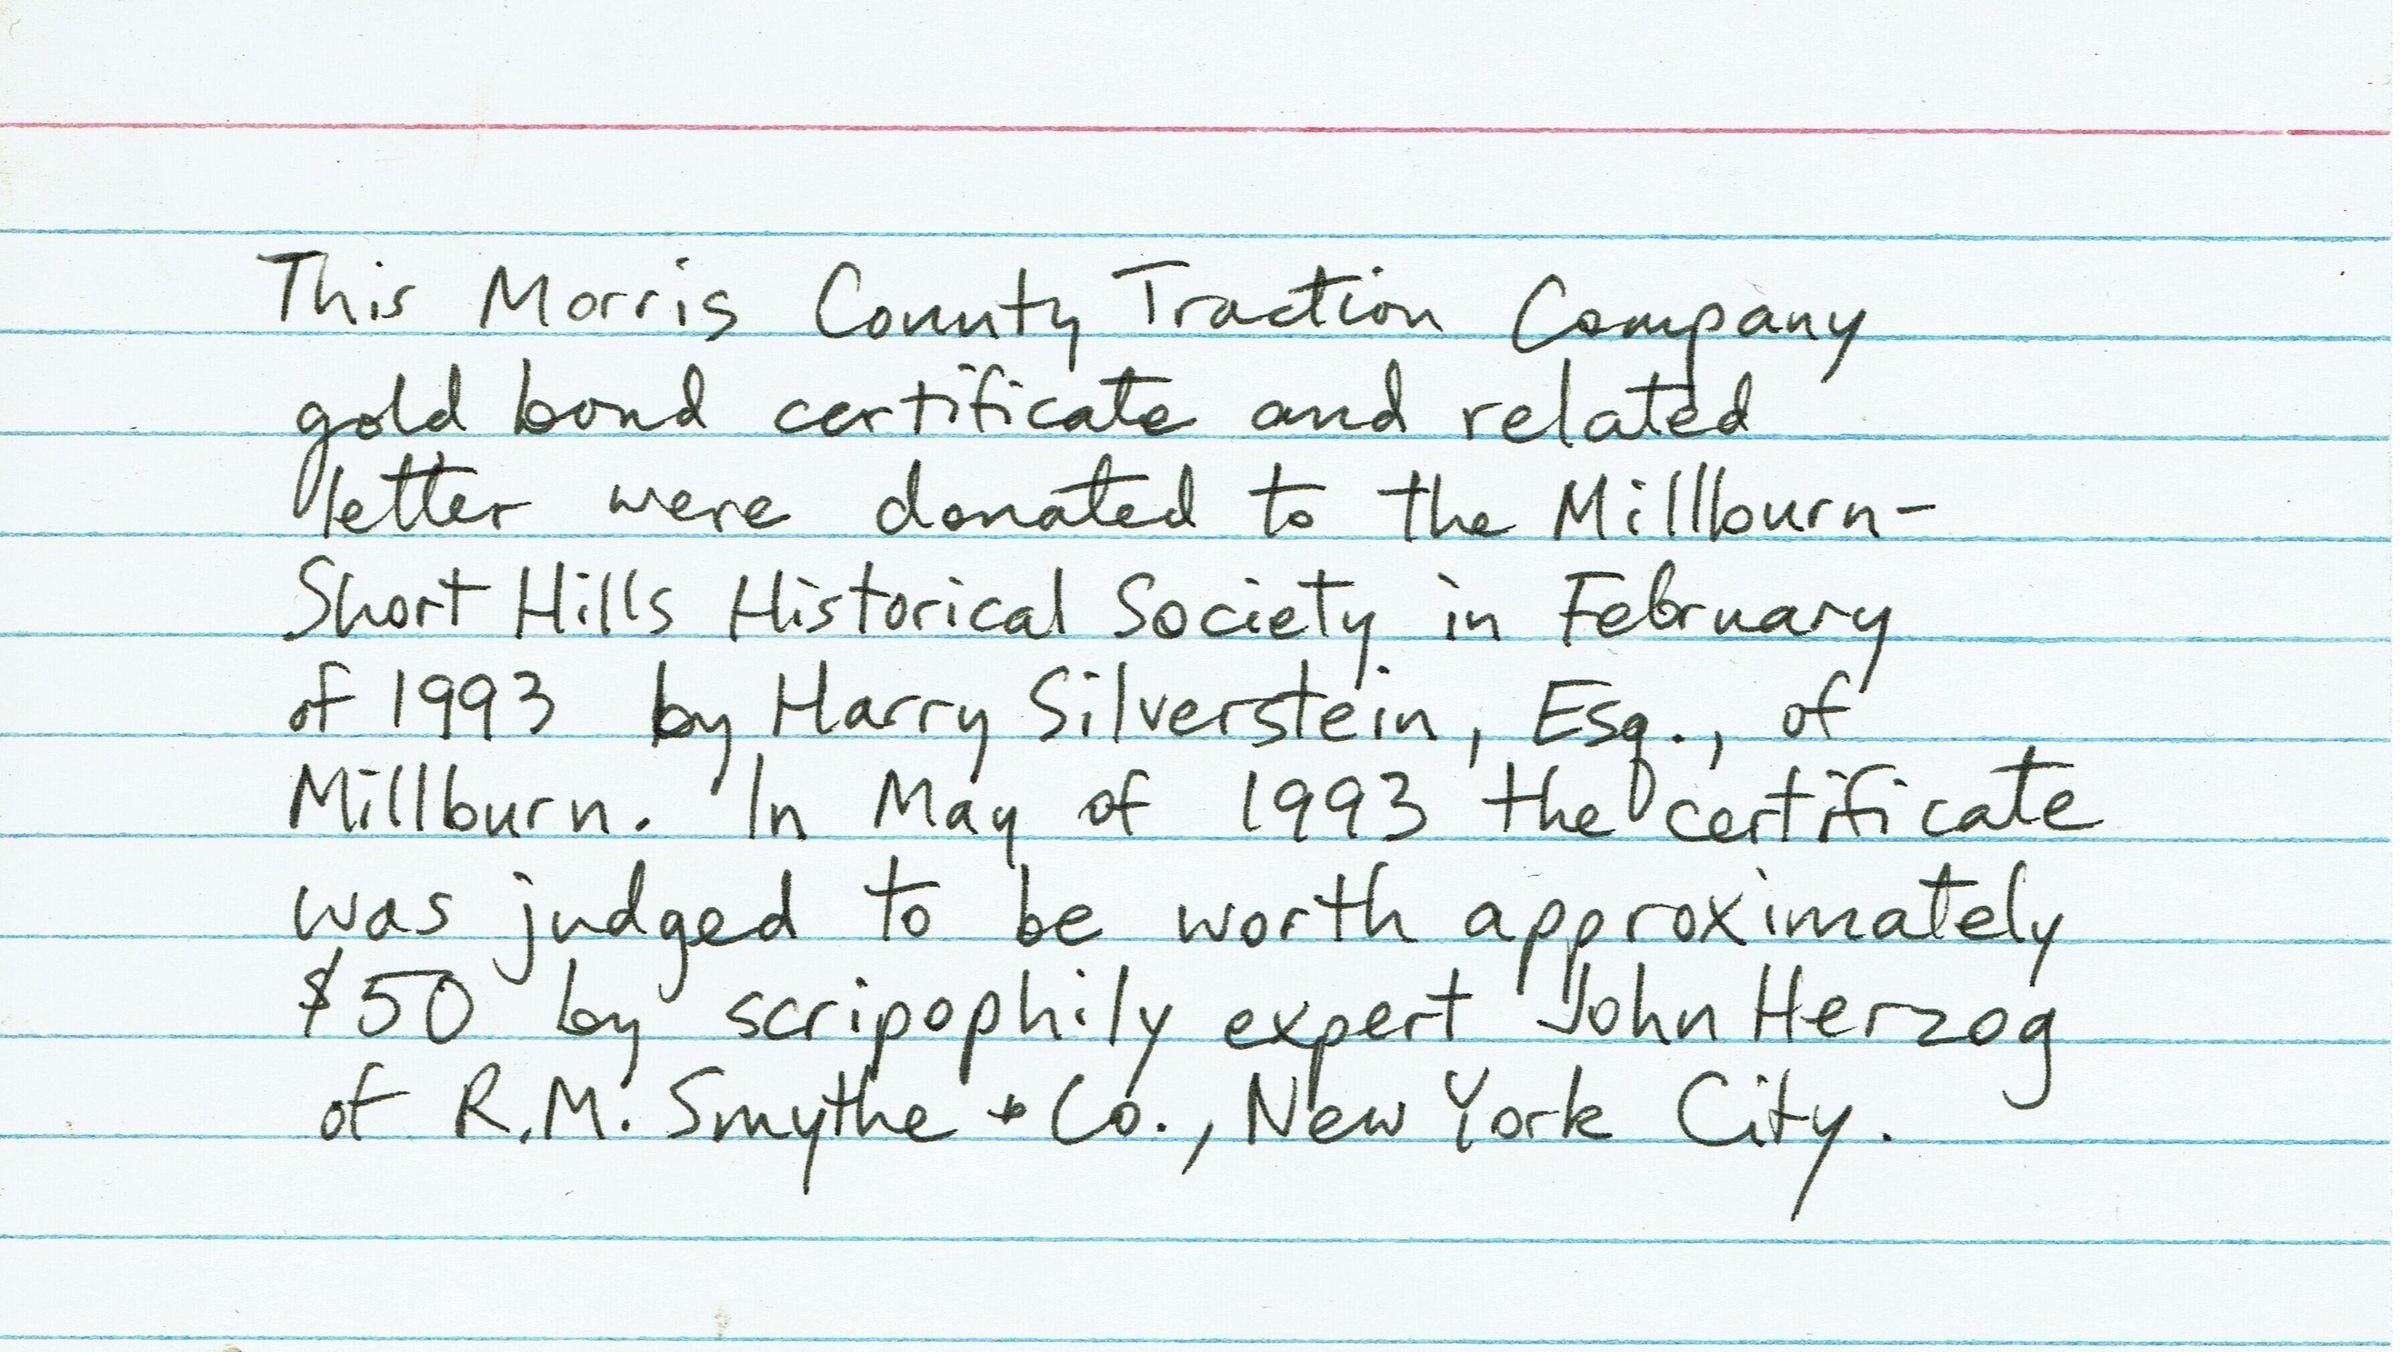 This Morris County Traction Company
gold bond certificate and related
letter were donated to the Millburn-
Short Hills Historical Society in February
of 1993 by Harry Silverstein, Esq., of
Millburn. In May of 1993 the certificate
was judged to be worth approximately
$50 by scripophily expert John Herzog
of R.M. Smythe + Co., New York City.